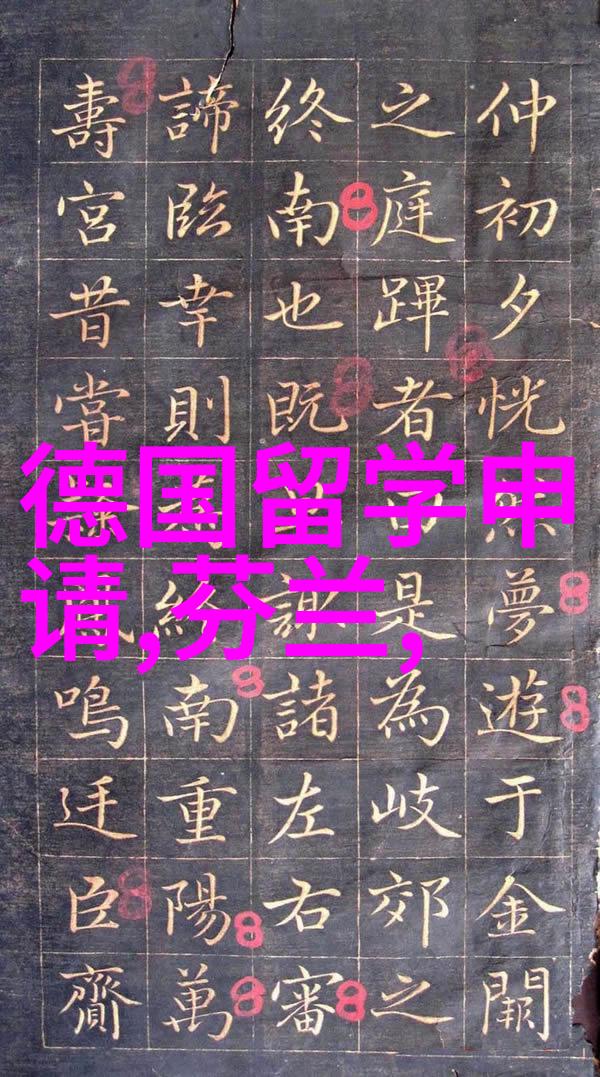 仲初夕恍然夢遊于金闕
之庭蹕者是為岐郊之
終南也既謝諸左右審
諦臨幸則終南重陽萬
壽宮昔嘗鳴迁臣齎
德国留学申
请,芬兰,